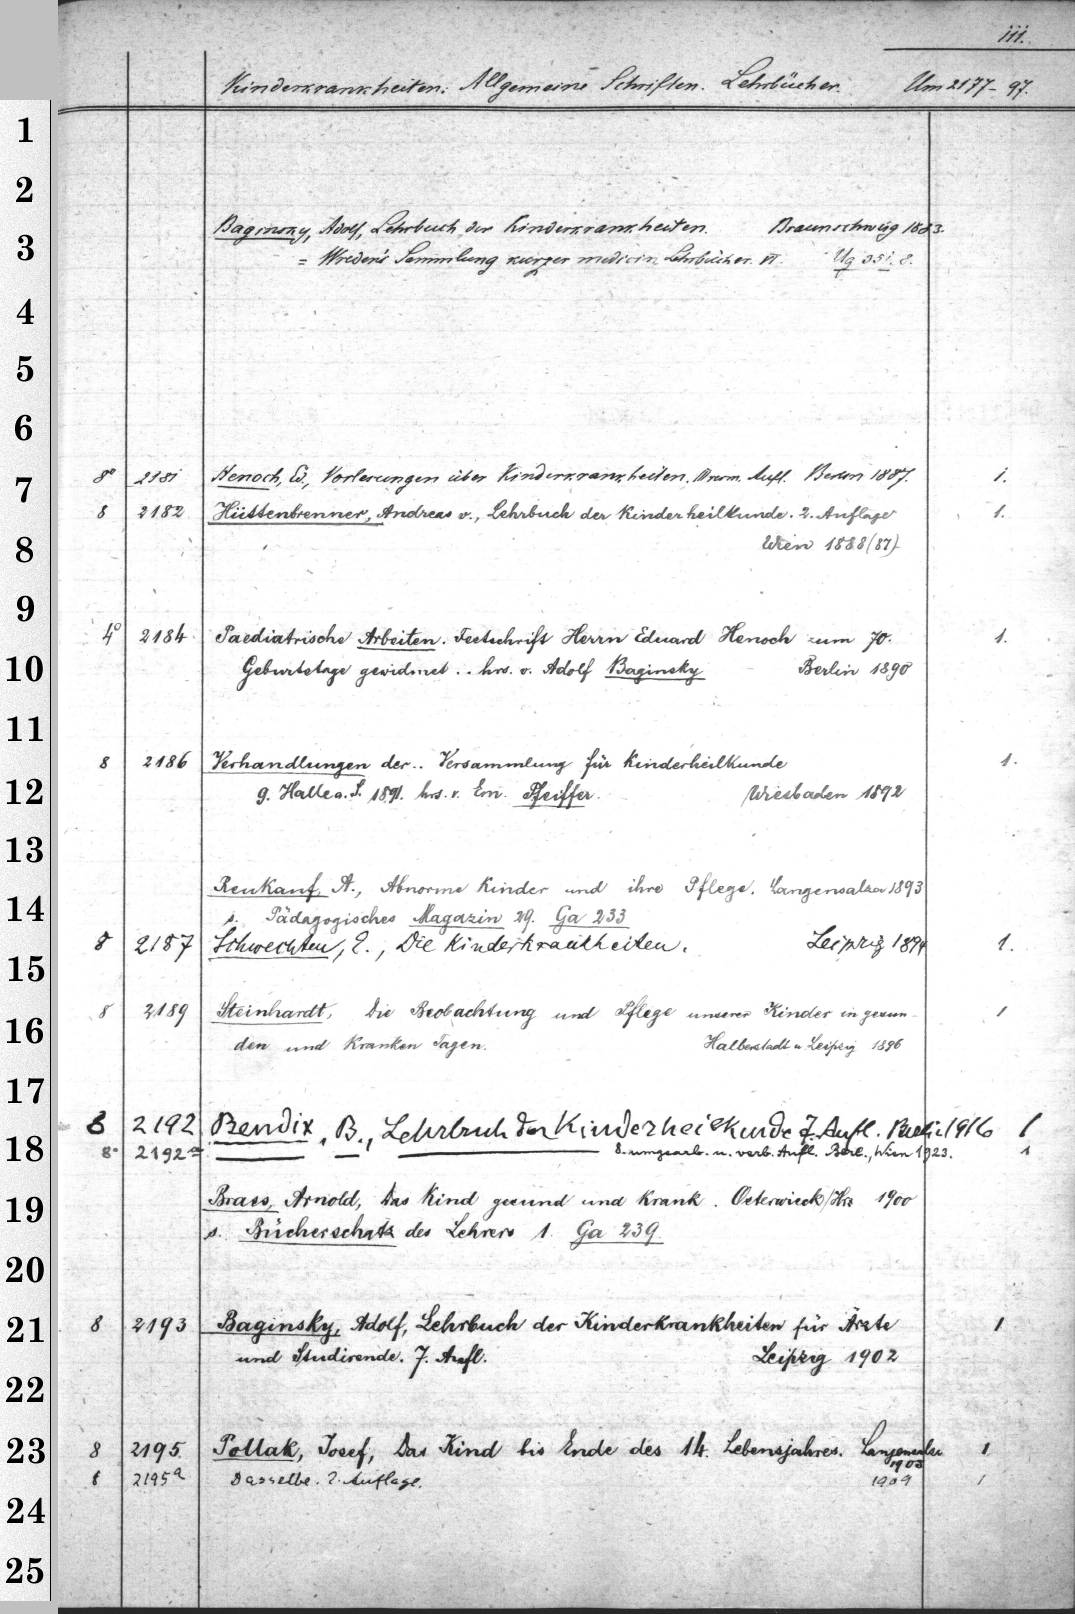 iii.
Kinderkrankheiten. Allgemeine Schriften. Lehrbücher. Um 2177-97.
1
2
Baginsky, Adolf, Lehrbuch der Kinderkrankheiten. Braunschweig 1883.
3
= Wreden's Sammlung kurzer medicin. Lehrbücher. VI. Ug 251. 8.
4
5
6
8° 2181 Henoch, Ed., Vorlesungen über Kinderkrankheiten. Aufl. Berlin 1887. 1.
7
8 2182 Hüttenbrenner, Andreas v., Lehrbuch der Kinderheilkunde. 2. Auflage 1.
8 Wien 1888 (87)
9
4° 2184 Paediatrische Arbeiten. Festschrift Herrn Eduard Henoch zum 70. 1.
10 Geburtstage gewidmet .. hrs. v. Adolf Baginsky Berlin 1890
11
8 2186 Verhandlungen der .. Versammlung für Kinderheilkunde 1.
12 9. Halle a. S. 1891. hrs. v. Em. Pfeiffer. Wiesbaden 1892
13
Reukauf, A., Abnorme Kinder und ihre Pflege. Langensalza 1893
14 s. Pädagogisches Magazin 29. Ga 233
8 2187 Schwechten, E., Die Kinderkrankheiten. Leipzig 1894 1.
15
8 2189 Steinhardt, Die Beobachtung und Pflege unserer Kinder in gesun- 1
16 den und kranken Tagen. Halberstadt u. Leipzig 1896
17
8 2192 Bendix, B., Lehrbuch der Kinderheilkunde 7. Aufl. Berlin 1916 1
18 8° 2192a 8. umgearb. u. verb. Aufl. Berl., Wien 1923. 1
19 Brass, Arnold, Das Kind gesund und krank. Osterwieck/Hrz 1900
s. Bücherschatz des Lehrers 1. Ga 239.
20
21 8 2193 Baginsky, Adolf, Lehrbuch der Kinderkrankheiten für Ärzte 1
und Studirende. 7. Aufl. Leipzig 1902
22
23 8 2195 Pollak, Josef, Das Kind bis Ende des 14. Lebensjahres. Langensalza 1
1903
8 2195a Dasselbe. 2. Auflage. 1909 1
24
25